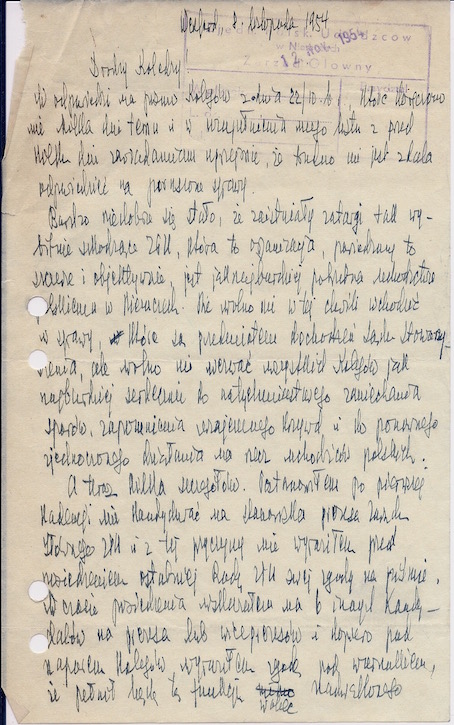 2. listopada 1954
Uchodźców
12 NOV. 1954
Zarząd Główny
Drodzy Koledzy
W odpowiedzi na pismo Kolegów z dnia 22/10. b.r., które otrzymano
mnie kilka dni temu i w uzupełnieniu mego listu z przed
kilku dni zawiadamiam uprzejmie, że trudno mi jest z dala
odpowiedzieć na poruszone sprawy.
Bardzo niedobrze się stało, że zaistniały zatargi tak wy-
bitnie szkodzące ZPU, która to organizacja, powiedzmy to
szczerze i objektywnie, jest jaknajbardziej potrzebna uchodźctwu
polskiemu w Niemczech. Nie wolno mi w tej chwili wchodzić
w sprawy, które są przedmiotem dochodzeń Sądu Stowarzy-
szenia, ale wolno mi wezwać wszystkich Kolegów jak
najbardziej serdecznie do natychmiastowego zaniechania
sporów, zapomnienia wzajemnego krzywd i do ponownego
zjednoczonego działania na rzecz uchodźców polskich.
A teraz kilka szczegółów. Postanowiłem po pierwszej
kadencji nie kandydować na stanowisko prezesa Zarządu
Głównego ZPU i z tej przyczyny nie wyraziłem przed
posiedzeniem ostatniej Rady ZPU swej zgody na piśmie.
W czasie posiedzenia wskazałem na 6 innych kandy-
datów na prezesa lub wiceprezesów i dopiero pod
naporem Kolegów wyraziłem zgodę pod warunkiem,
że pełnił będę tę funkcję wobec